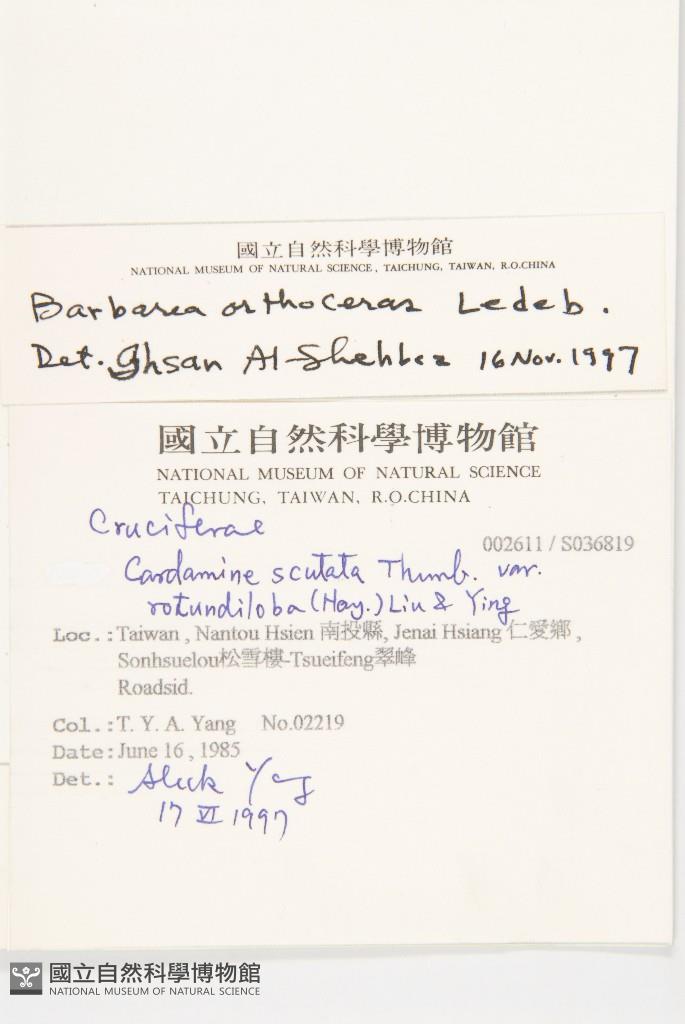 國立自然科學博物館
NATIONAL MUSEUM OF NATURAL SCIENCE, TAICHUNG, TAIWAN, R.O.CHINA
Barbarea orthoceras Ledeb.
Det. Ihsan Al-Shehbaz 16 Nov. 1997
國立自然科學博物館
NATIONAL MUSEUM OF NATURAL SCIENCE
TAICHUNG, TAIWAN, R.O.CHINA
Cruciferae
002611 / S036819
Cardamine scutata Thunb. var.
rotundiloba (Hay.) Liu & Ying
Loc.: Taiwan , Nantou Hsien 南投縣, Jenai Hsiang 仁愛鄉 ,
Sonhsuelou松雪樓-Tsueifeng翠峰
Roadsid.
Col.: T. Y. A. Yang No.02219
Date: June 16 , 1985
Det.: Aleck Yang
17 VI 1997
國立自然科學博物館
NATIONAL MUSEUM OF NATURAL SCIENCE